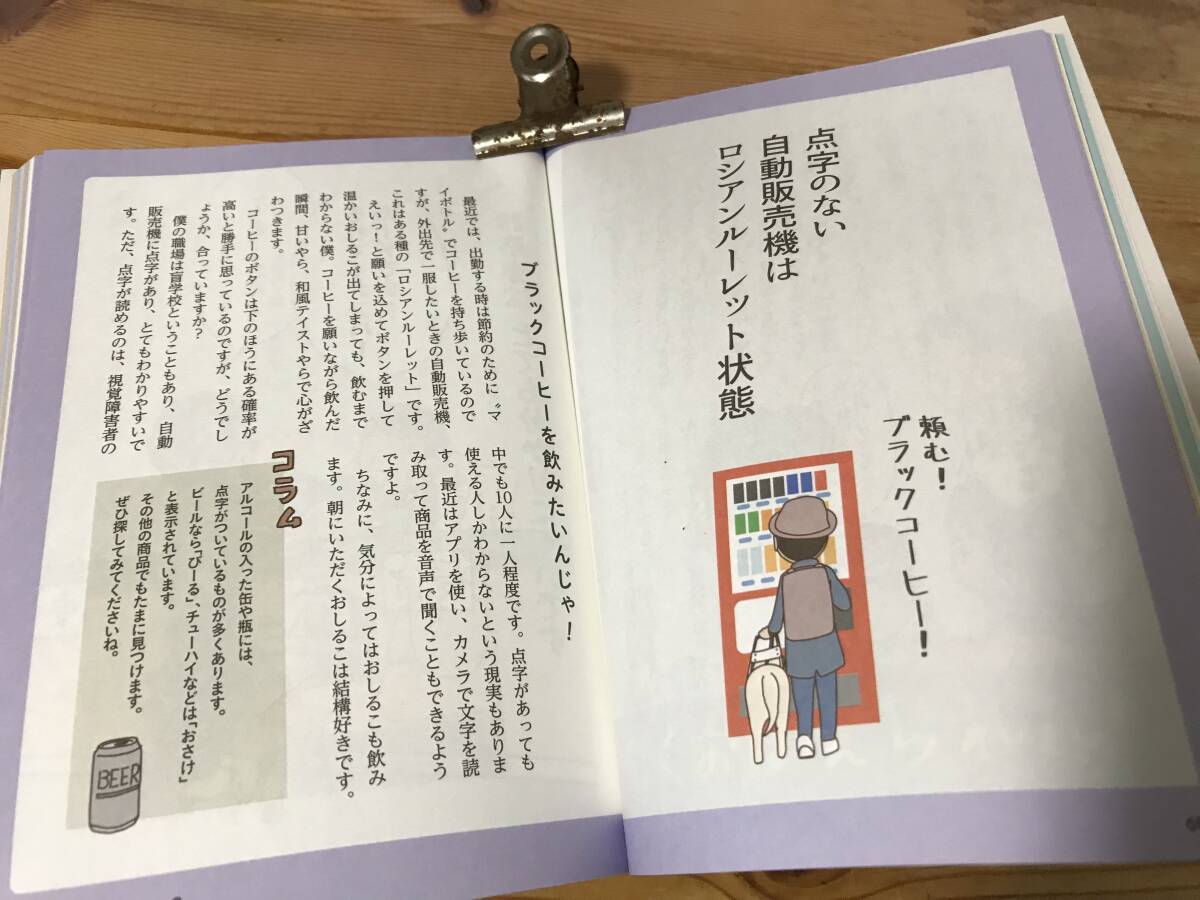 点字のない
自動販売機は
ロシアンルーレット状態
頼む!
ブラックコーヒー!
ブラックコーヒーを飲みたいんじゃ!
最近では、出勤する時は節約のために〝マ
イボトル〟でコーヒーを持ち歩いているので
すが、外出先で一服したいときの自動販売機、
これはある種の「ロシアンルーレット」です。
えいっ!と願いを込めてボタンを押して
温かいおしるこが出てしまっても、飲むまで
わからない僕。コーヒーを願いながら飲んだ
瞬間、甘いやら、和風テイストやらで心がざ
わつきます。
コーヒーのボタンは下のほうにある確率が
高いと勝手に思っているのですが、どうでし
ょうか、合っていますか?
僕の職場は盲学校ということもあり、自動
販売機に点字があり、とてもわかりやすいで
す。ただ、点字が読めるのは、視覚障害者の
中でも10人に一人程度です。点字があっても
使える人しかわからないという現実もありま
す。最近はアプリを使い、カメラで文字を読
み取って商品を音声で聞くこともできるよう
ですよ。
ちなみに、気分によってはおしるこも飲み
ます。朝にいただくおしるこは結構好きです。
コラム
アルコールの入った缶や瓶には、
点字がついているものが多くあります。
ビールなら「びーる」、チューハイなどは「おさけ」
と表示されています。
その他の商品でもたまに見つけます。
ぜひ探してみてくださいね。
BEER